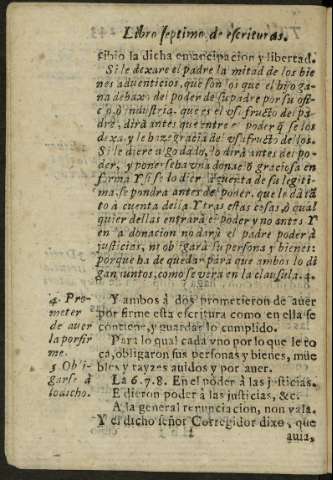 Libro septimo, de escrituras.
cibio la dicha emancipacion y libertad.
Si le dexare el padre la mitad de los bie
nes aduenticios, que son los que el hijo ga
na debaxo del poder de su padre por su ofi-
cio, ò industria, que es el vsufructo del pa
dre, dirà antes que entre el poder q̃ se los
dexa, y le haze gracia del vsufructo de los.
Si le diere algo dado, lo dirà antes del po-
der, y ponerseha vna donaciõ graciosa en
forma y si se lo diere à cuenta de su legiti
ma, se pondra antes del poder, que le dà tã
to à cuenta della Y tras estas cosas, ò qual
quier dellas entrarà el poder y no antes Y
en la donacion no darà el padre poder à
justicias, ni obligarà su persona y bienes:
porque ha de quedar para que ambos lo di
gan juntos, como se vera en la clausula. 4.
4. Pro-
meter
de auer
la por fir
me.
Y ambos à dos prometieron de auer
por firme esta escritura como en ella se
contiene, y guardar lo cumplido.
Para lo qual cada vno por lo que le to
ca, obligaron sus personas y bienes, mue
bles y rayzes auidos y por auer.
5 Obli-
garse à
lo dicho.
La 6. 7. 8. En el poder à las justicias.
E dieron poder à las justicias, &c.
A la general renunciacion, non vala.
Y el dicho señor Corregidor dixo, que
auia,